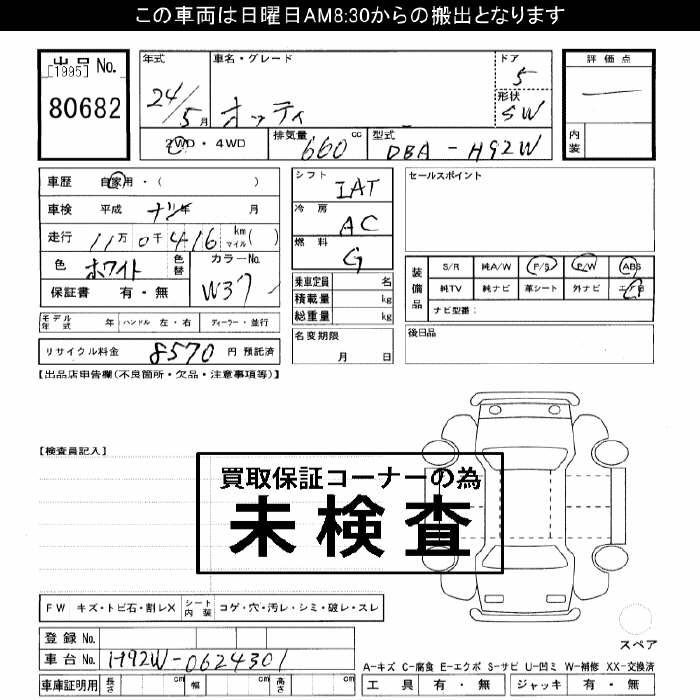 この車両は日曜日AM8:30からの搬出となります
出品 No. [1995]
80682
年式 24/5月
車名・グレード オッティ
ドア 5
形状 SW
評価点 —
内装
2WD・4WD 排気量 660 cc 型式 DBA-H92W
車歴 自家用・( )
車検 平成 ナシ 年 月
走行 11万 0千 416 km マイル( )
色 ホワイト 色替 カラーNo. W37
保証書 有・無
シフト IAT
冷房 AC
燃料 G
乗車定員 名
積載量 kg
総重量 kg
名変期限 月 日
セールスポイント
装備品 S/R 純A/W P/S P/W ABS
純TV 純ナビ 革シート 外ナビ エアB
ナビ型番:
後日品
モデル年式 年 ハンドル 左・右 ディーラー・並行
リサイクル料金 8570 円 預託済
【出品店申告欄(不良箇所・欠品・注意事項等)】
【検査員記入】
買取保証コーナーの為
未検査
FW キズ・トビ石・割レX シート内装 コゲ・穴・汚レ・シミ・破レ・スレ
スペア
登録 No.
車台 No. H92W-0624301
A-キズ C-腐食 E-エクボ S-サビ U-凹ミ W-補修 XX-交換済
車庫証明用 長さ cm 幅 cm 高さ cm
工具 有・無 ジャッキ 有・無